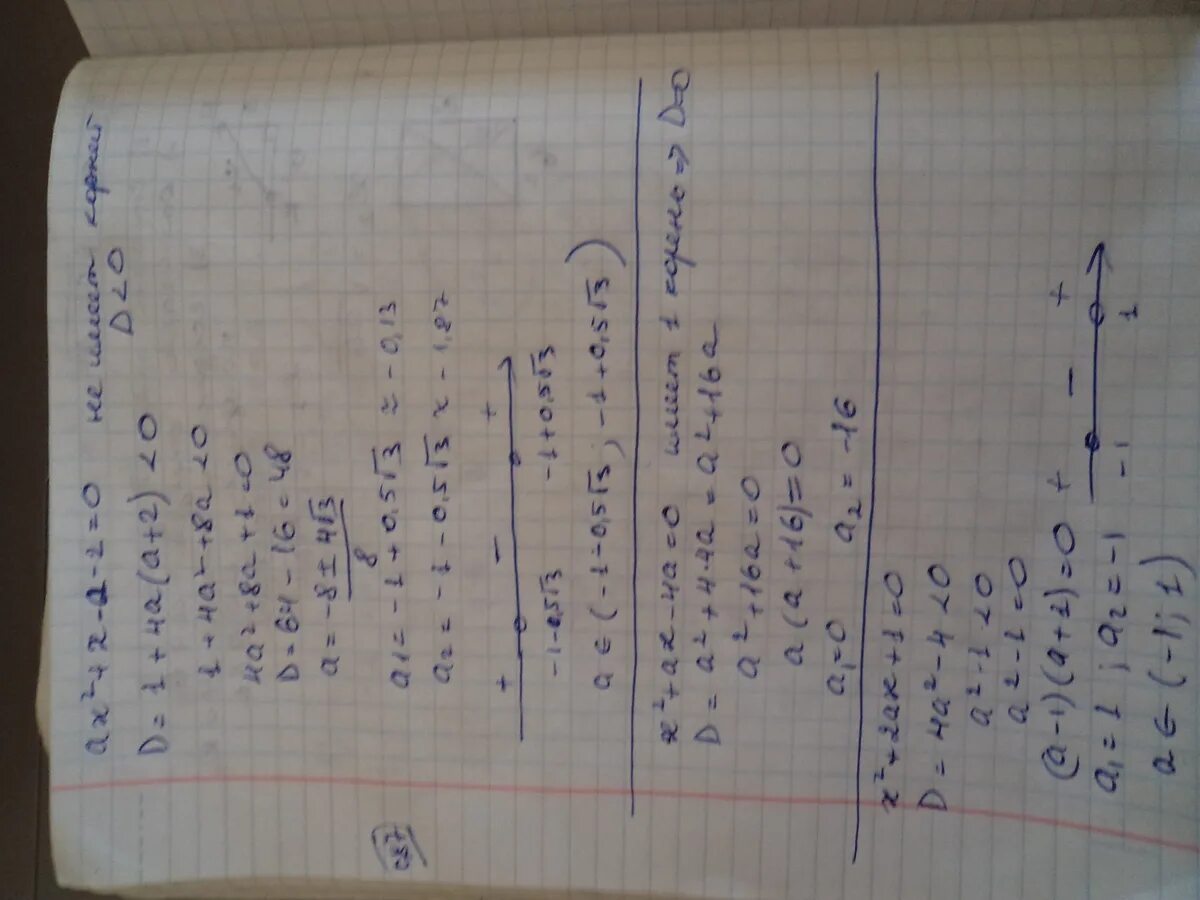 ax²+x-a-2=0 не имеет корней
D<0
D=1+4a(a+2)<0
1+4a²+8a<0
4a²+8a+1=0
D=64-16=48
a=-8±4√3
8
a1=-1+0,5√3≈-0,13
a2=-1-0,5√3≈-1,87
+ - +
-1-0,5√3 -1+0,5√3
a∈(-1-0,5√3; -1+0,5√3)
x²+ax-4a=0 имеет 1 корень => D=0
D=a²+4·4a=a²+16a
a²+16a=0
a(a+16)=0
a1=0 a2=-16
x²+2ax+1=0
D=4a²-4<0
a²-1<0
a²-1=0
(a-1)(a+1)=0
+ - +
a1=1; a2=-1
-1 1
a∈(-1;1)